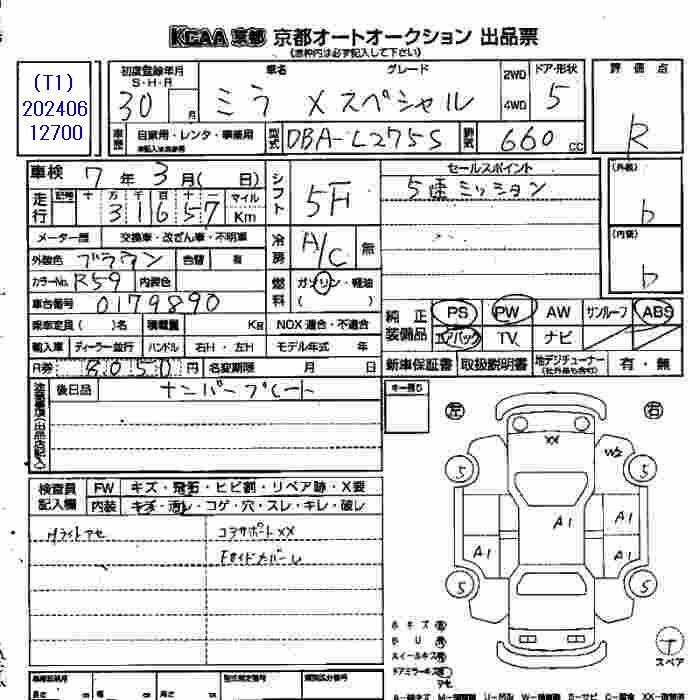 KCAA 京都 京都オートオークション 出品票
(太枠内は必ず記入して下さい)
(T1)
202406
12700
初度登録年月 S・H・R 30 月
車名 ミラ
グレード Xスペシャル
2WD
4WD
ドア・形状 5
評価点 R
車歴 自家用・レンタ・事業用
型式 DBA-L275S
排気 660 cc
車検 7年 3月( 日)
走行 記号 十 万 千 百 十 一 31657 マイル Km
シフト 5F
セールスポイント
5速ミッション
(外装) b
(内装) b
メーター歴 交換車・改ざん車・不明車
冷房 A/C 無
外装色 ブラウン 色替 有
カラーNo. R59 内装色
燃料 ガソリン・軽油
( )
車台番号 0179890
純正装備品 PS PW AW サンルーフ ABS
エアバック TV ナビ
乗車定員( )名 積載量 Kg NOX 適合・不適合
輸入車 ディーラー・並行 ハンドル 右H・左H モデル年式 年
新車保証書 取扱説明書 地デジチューナー 有・無
R券 8050 円 名変期限 月 日
後日品 ナンバープレート
キー残り
左
右
検査員記入欄 FW キズ・飛石・ヒビ割・リペア跡・X要
内装 キズ・汚レ・コゲ・穴・スレ・キレ・破レ
Hライトアセ
コアサポートXX
FサイドカバーU
XX
W2
5
5
A1
A1
A1
A1
5
5
スペア